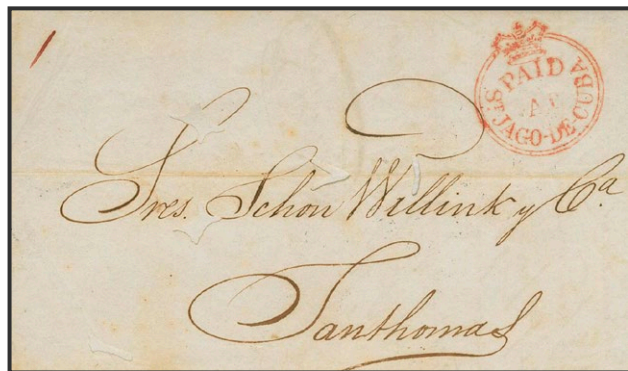 PAID
AT
ST. JAGO-DE-CUBA
Sres. Schön Willink y Ca
Santhomas